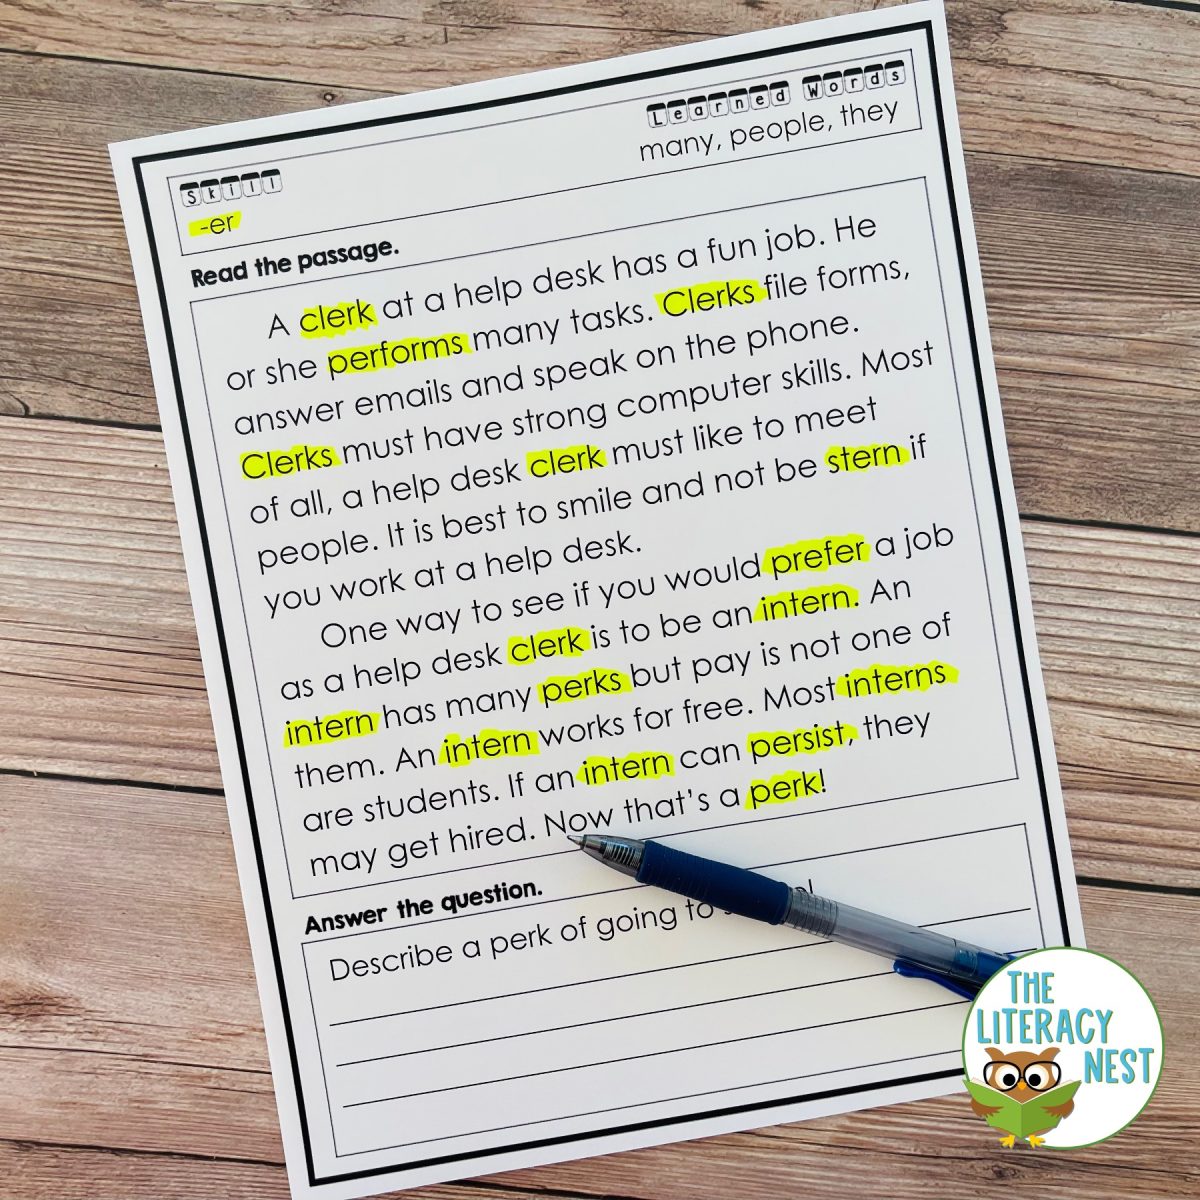 Learned Words
many, people, they
Skill
-er
Read the passage.
A clerk at a help desk has a fun job. He
or she performs many tasks. Clerks file forms,
answer emails and speak on the phone.
Clerks must have strong computer skills. Most
of all, a help desk clerk must like to meet
people. It is best to smile and not be stern if
you work at a help desk.
One way to see if you would prefer a job
as a help desk clerk is to be an intern. An
intern has many perks but pay is not one of
them. An intern works for free. Most interns
are students. If an intern can persist, they
may get hired. Now that's a perk!
Answer the question.
Describe a perk of going to
THE
LITERACY
NEST